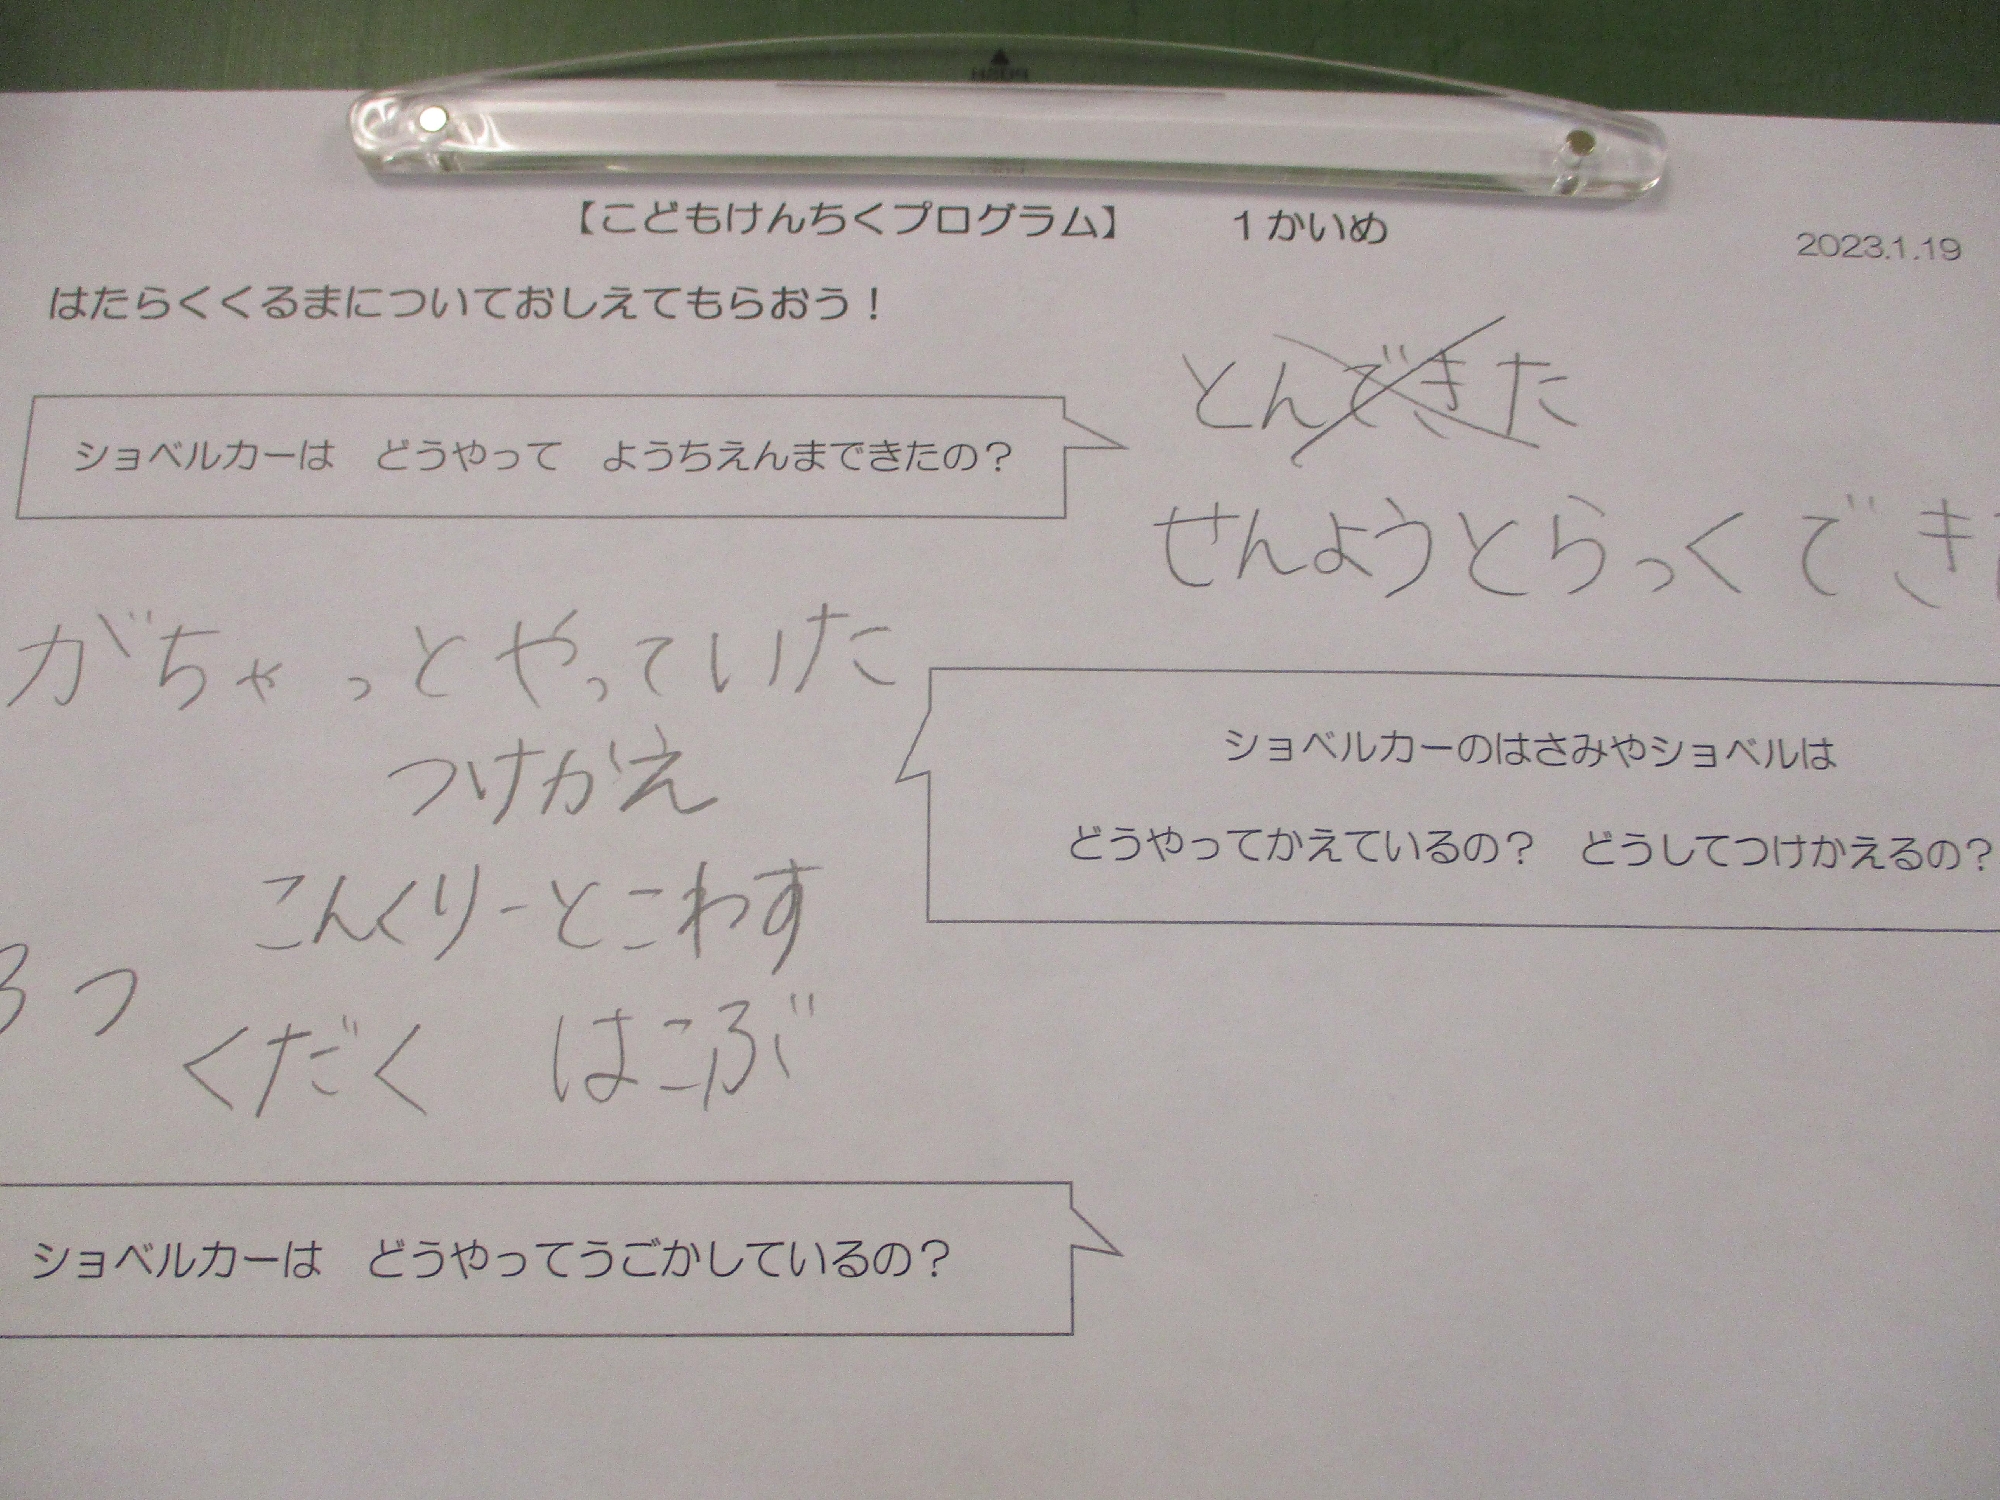 【こどもけんちくプログラム】 1かいめ
2023.1.19
はたらくくるまについておしえてもらおう！
ショベルカーは どうやって ようちえんまできたの？
とんできた
せんようとらっくでき
がちゃっとやっていた
つけかえ
ショベルカーのはさみやショベルは
どうやってかえているの？ どうしてつけかえるの？
こんくりーとこわす
ろっ
くだく はこぶ
ショベルカーは どうやってうごかしているの？